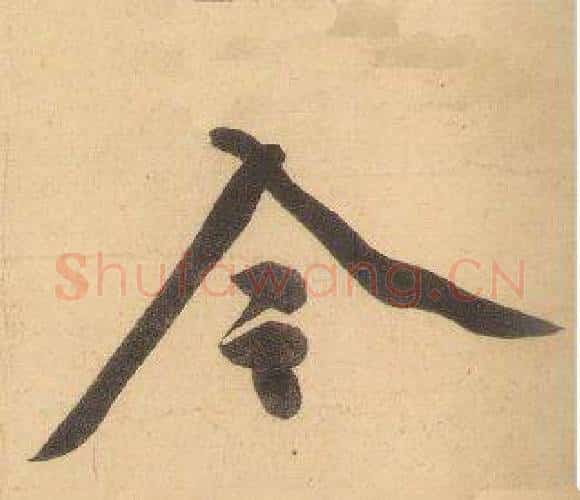 令
Shufawang.CN